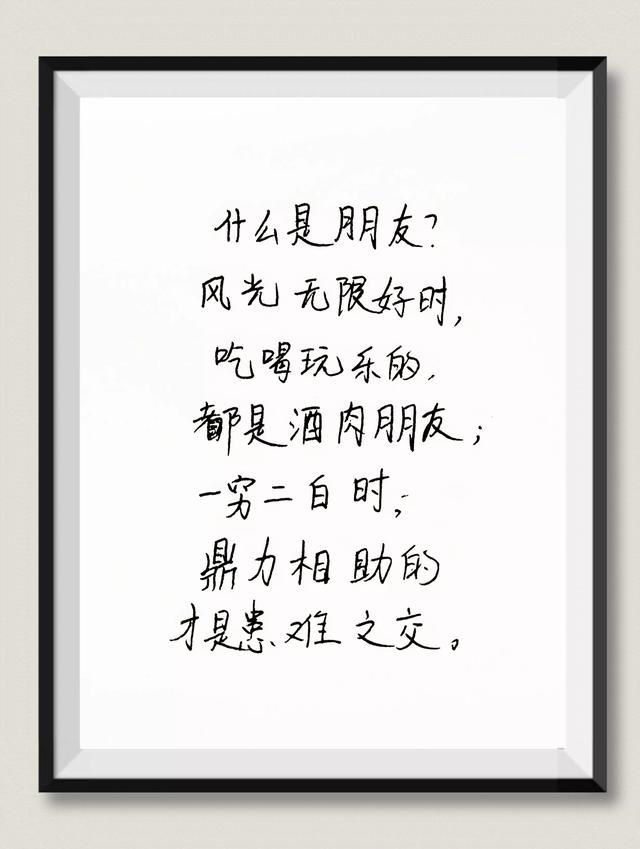 什么是朋友？
风光无限好时，
吃喝玩乐的，
都是酒肉朋友；
一穷二白时；
鼎力相助的
才是患难之交。